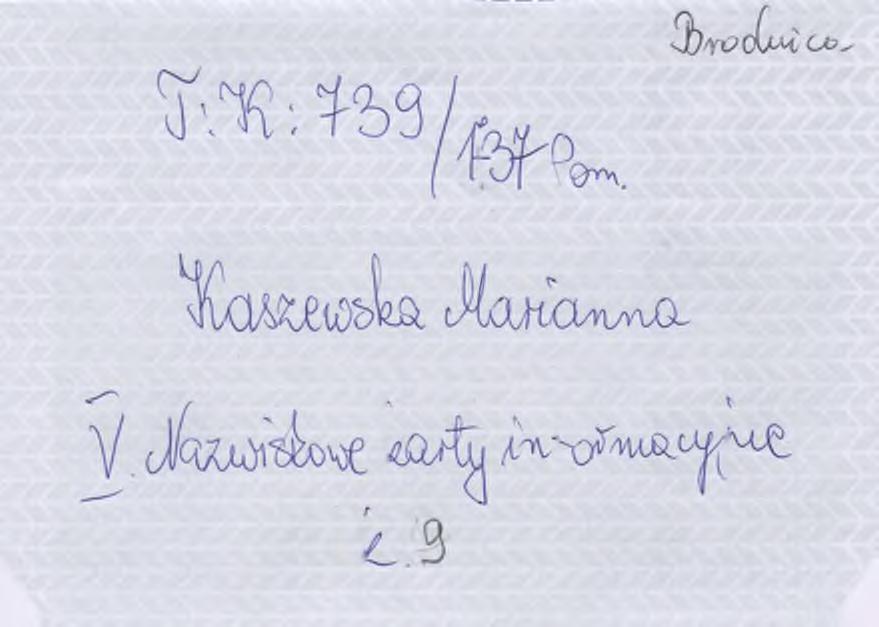 Brodnica
T: K: 739/737 Pom.
Kaszewska Marianna
V. Nazwiskowe karty informacyjne
k. 9